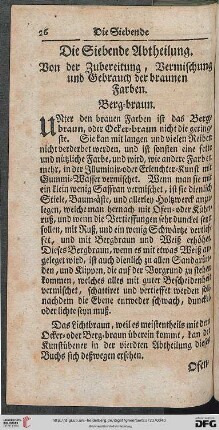 26 Die Siebende
Die Siebende Abtheilung.
Von der Zubereitung, Vermischung
und Gebrauch der braunen
Farben.
Berg-braun.
UNter den brauen Farben ist das Berg-
braun, oder Ocker-braun nicht die gering-
ste. Sie kan mit langen und vielen Reiben
nicht verderbet werden, und ist sonsten eine feine
und nützliche Farbe, und wird, wie andere Farben
mehr, in der Illuminir- oder Erleuchter-Kunst mit
Gummi-Wasser vermischet. Wann man sie mit
ein klein wenig Saffran vermischet, ist sie dienlich
Stiele, Baum-äste, und allerley Holtzwerck anzu-
legen, welche man hernach mit Ofen- oder Kühn-
ruß, und wenn die Vertieffungen sehr dunckel seyn
sollen, mit Ruß, und ein wenig Schwärtze vertief-
fet, und mit Bergbraun und Weiß erhöhet
Dieses Bergbraun, wenn es mit etwas Weiß an-
geleget wird, ist auch dienlich zu allen Sandgrün-
den, und Klippen, die auf der Vorgrund zu stehen
kommen, welches alles mit guter Bescheidenheit
vermischet, schattiret und vertieffet werden soll
nachdem die Ebene entweder schwach, dunckel
oder lichte seyn muß.
Das Lichtbraun, weil es meistentheils mit dem
Ocker- oder Berg-braun überein kommt, kan der
Kunstübende in der vierdten Abtheilung dieses
Buchs sich deßwegen ersehen.
Ofen-